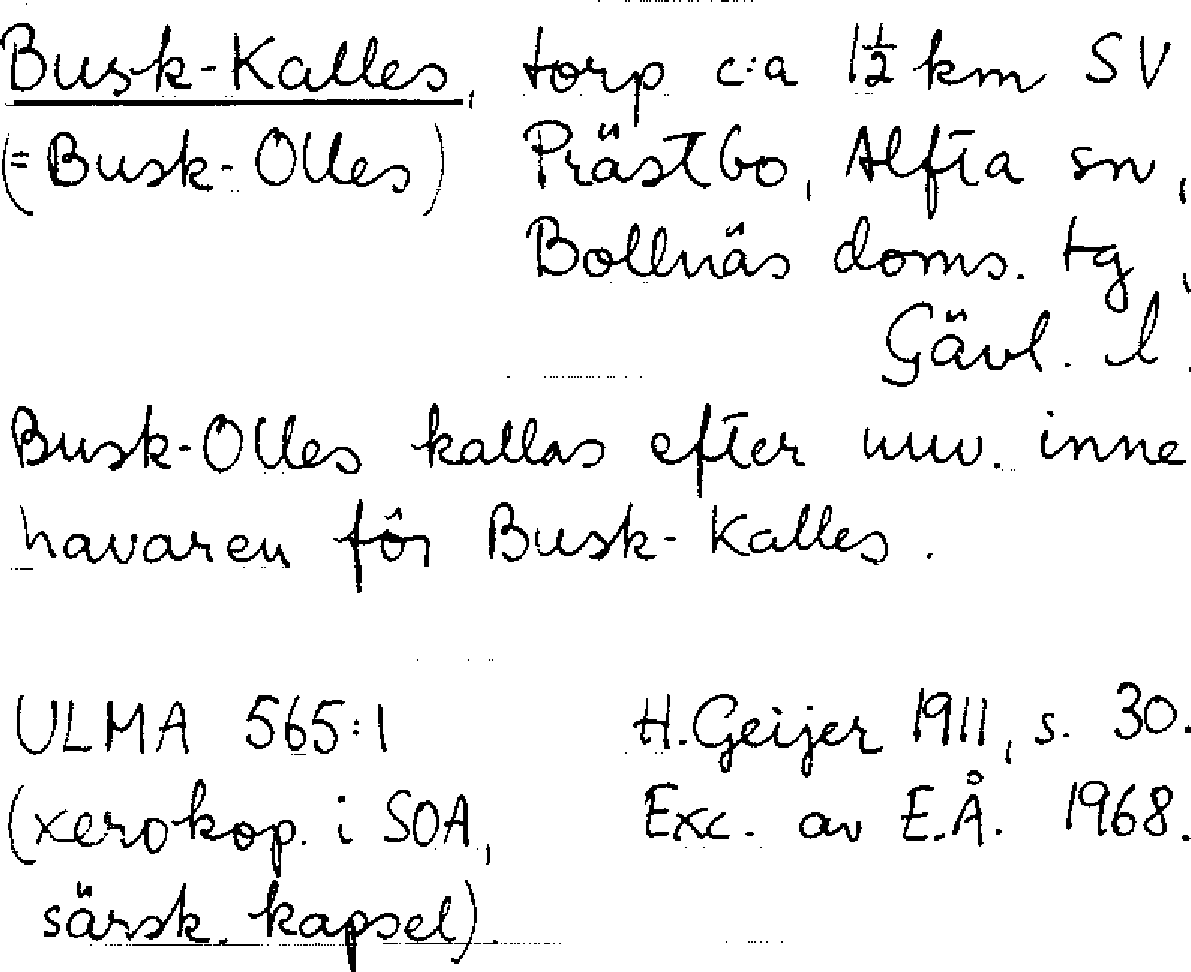 Busk-Kalles, torp c:a 1½ km SV
(= Busk-Olles) Prästbo, Alfta sn,
Bollnäs doms. tg,
Gävl. l.
Busk-Olles kallas efter nuv. inne
havaren för Busk-Kalles.
ULMA 565:1 H. Geijer 1911, s. 30.
(xerokop. i SOA, Exc. av E.Å. 1968.
särsk. kapsel).